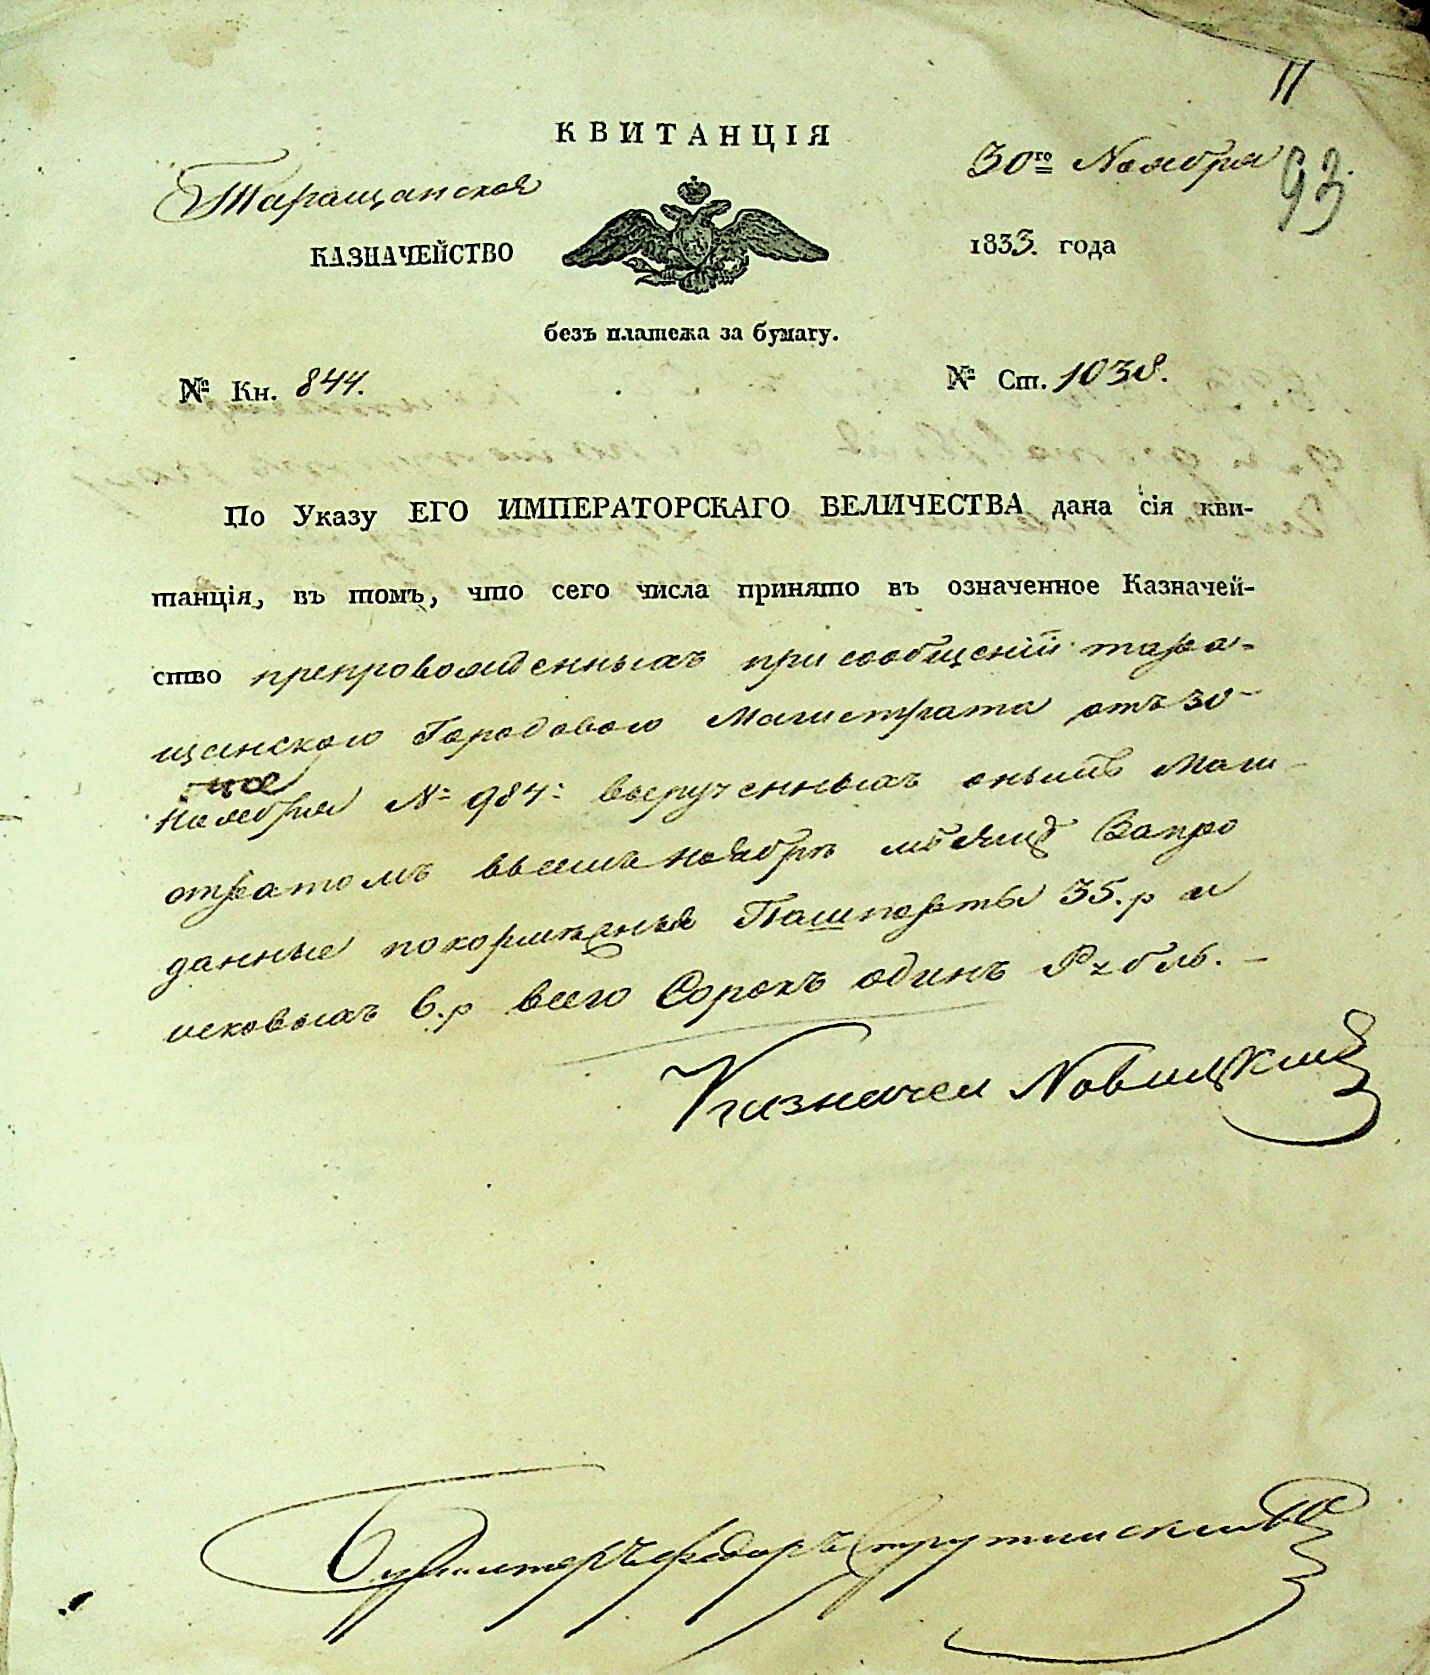 11
КВИТАНЦІЯ
30го Ноября
93.
Таращанское
КАЗНАЧЕЙСТВО
1833. года
безъ платежа за бумагу.
№ Кн. 844.
№ Ст. 1038.
По Указу ЕГО ИМПЕРАТОРСКАГО ВЕЛИЧЕСТВА дана сія кви-
танція, въ томъ, что сего числа принято въ означенное Казначей-
ство препровожденныхъ при сообщеній тара-
щанского Городового Магистрата отъ 30
Ноября № 984: вырученныхъ онымъ Маги-
стратомъ всемъ ноябрѣ мѣсяцѣ Запро
данные покормежныя Пашпорты 35.р и
исковыхъ 6.р всего Сорокъ одинъ Рубль. -
Казначеи Новицкий
Бухгалтеръ Федоръ Струтинский